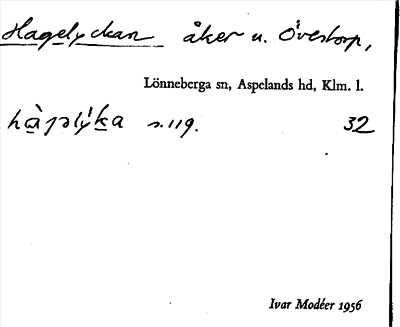 Hagelyckan åker u. Övestorp,
Lönneberga sn, Aspelands hd, Klm. l.
s. 119. 32
Ivar Modéer 1956